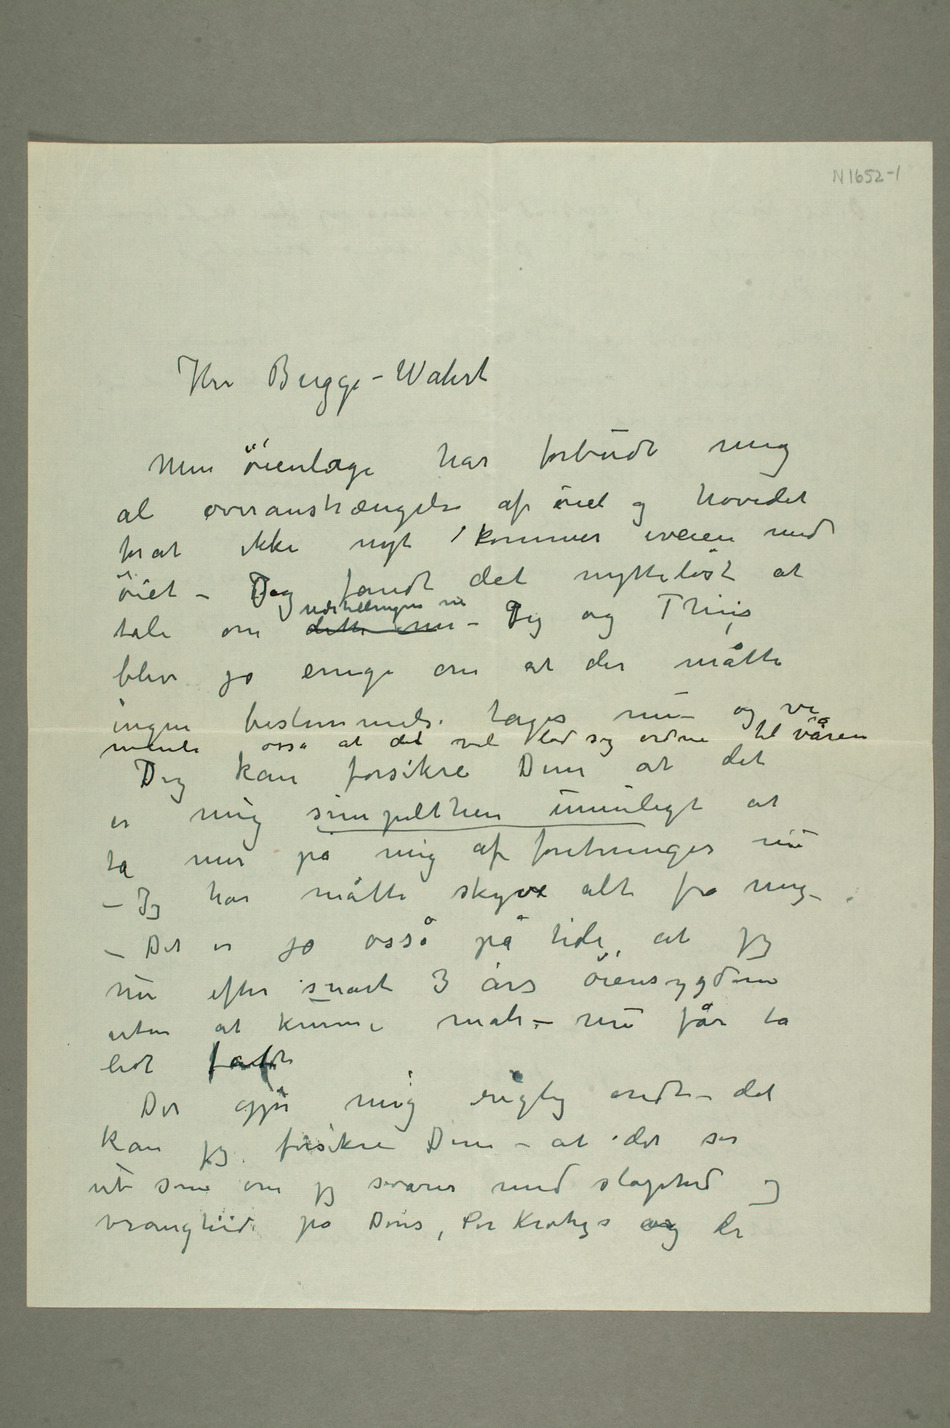 N 1652-1
Hr Bugge-Wahrt
Min öienlæge har forbudt mig
al overanstrængelse af öiet og hovedet
forat ikke nyt kommer iveien med
öiet – Jeg fandt det nyttelöst at
tale om dette nu udstillingen nu – Jeg og Thiis
blev jo enige om at der måtte
ingen bestemmelse tages nu – og vi
mente osså at det vel lod sig ordne til våren
Jeg kan forsikre Dem at det
er mig simpelthen umuligt at
ta mer på mig af foretninger nu
– Jeg har måtte skyve alt fra mig –
– Det er jo osså på tide, at jeg
nu efter snart 3 års öiensygdom
uten at kunne male – nu får ta
lidt fat
Det gjør mig rigtig ondt – det
kan jeg forsikre Dem – at det ser
ut som om jeg svarer med slaphed og
vranghed på Deres, Per Krohgs og de